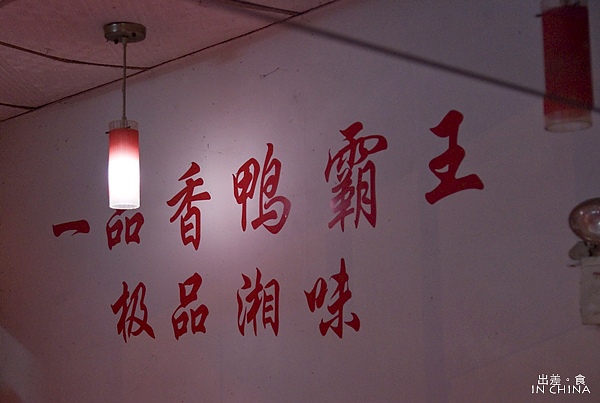 一品香鸭霸王
极品湘味
出差。食
IN CHINA